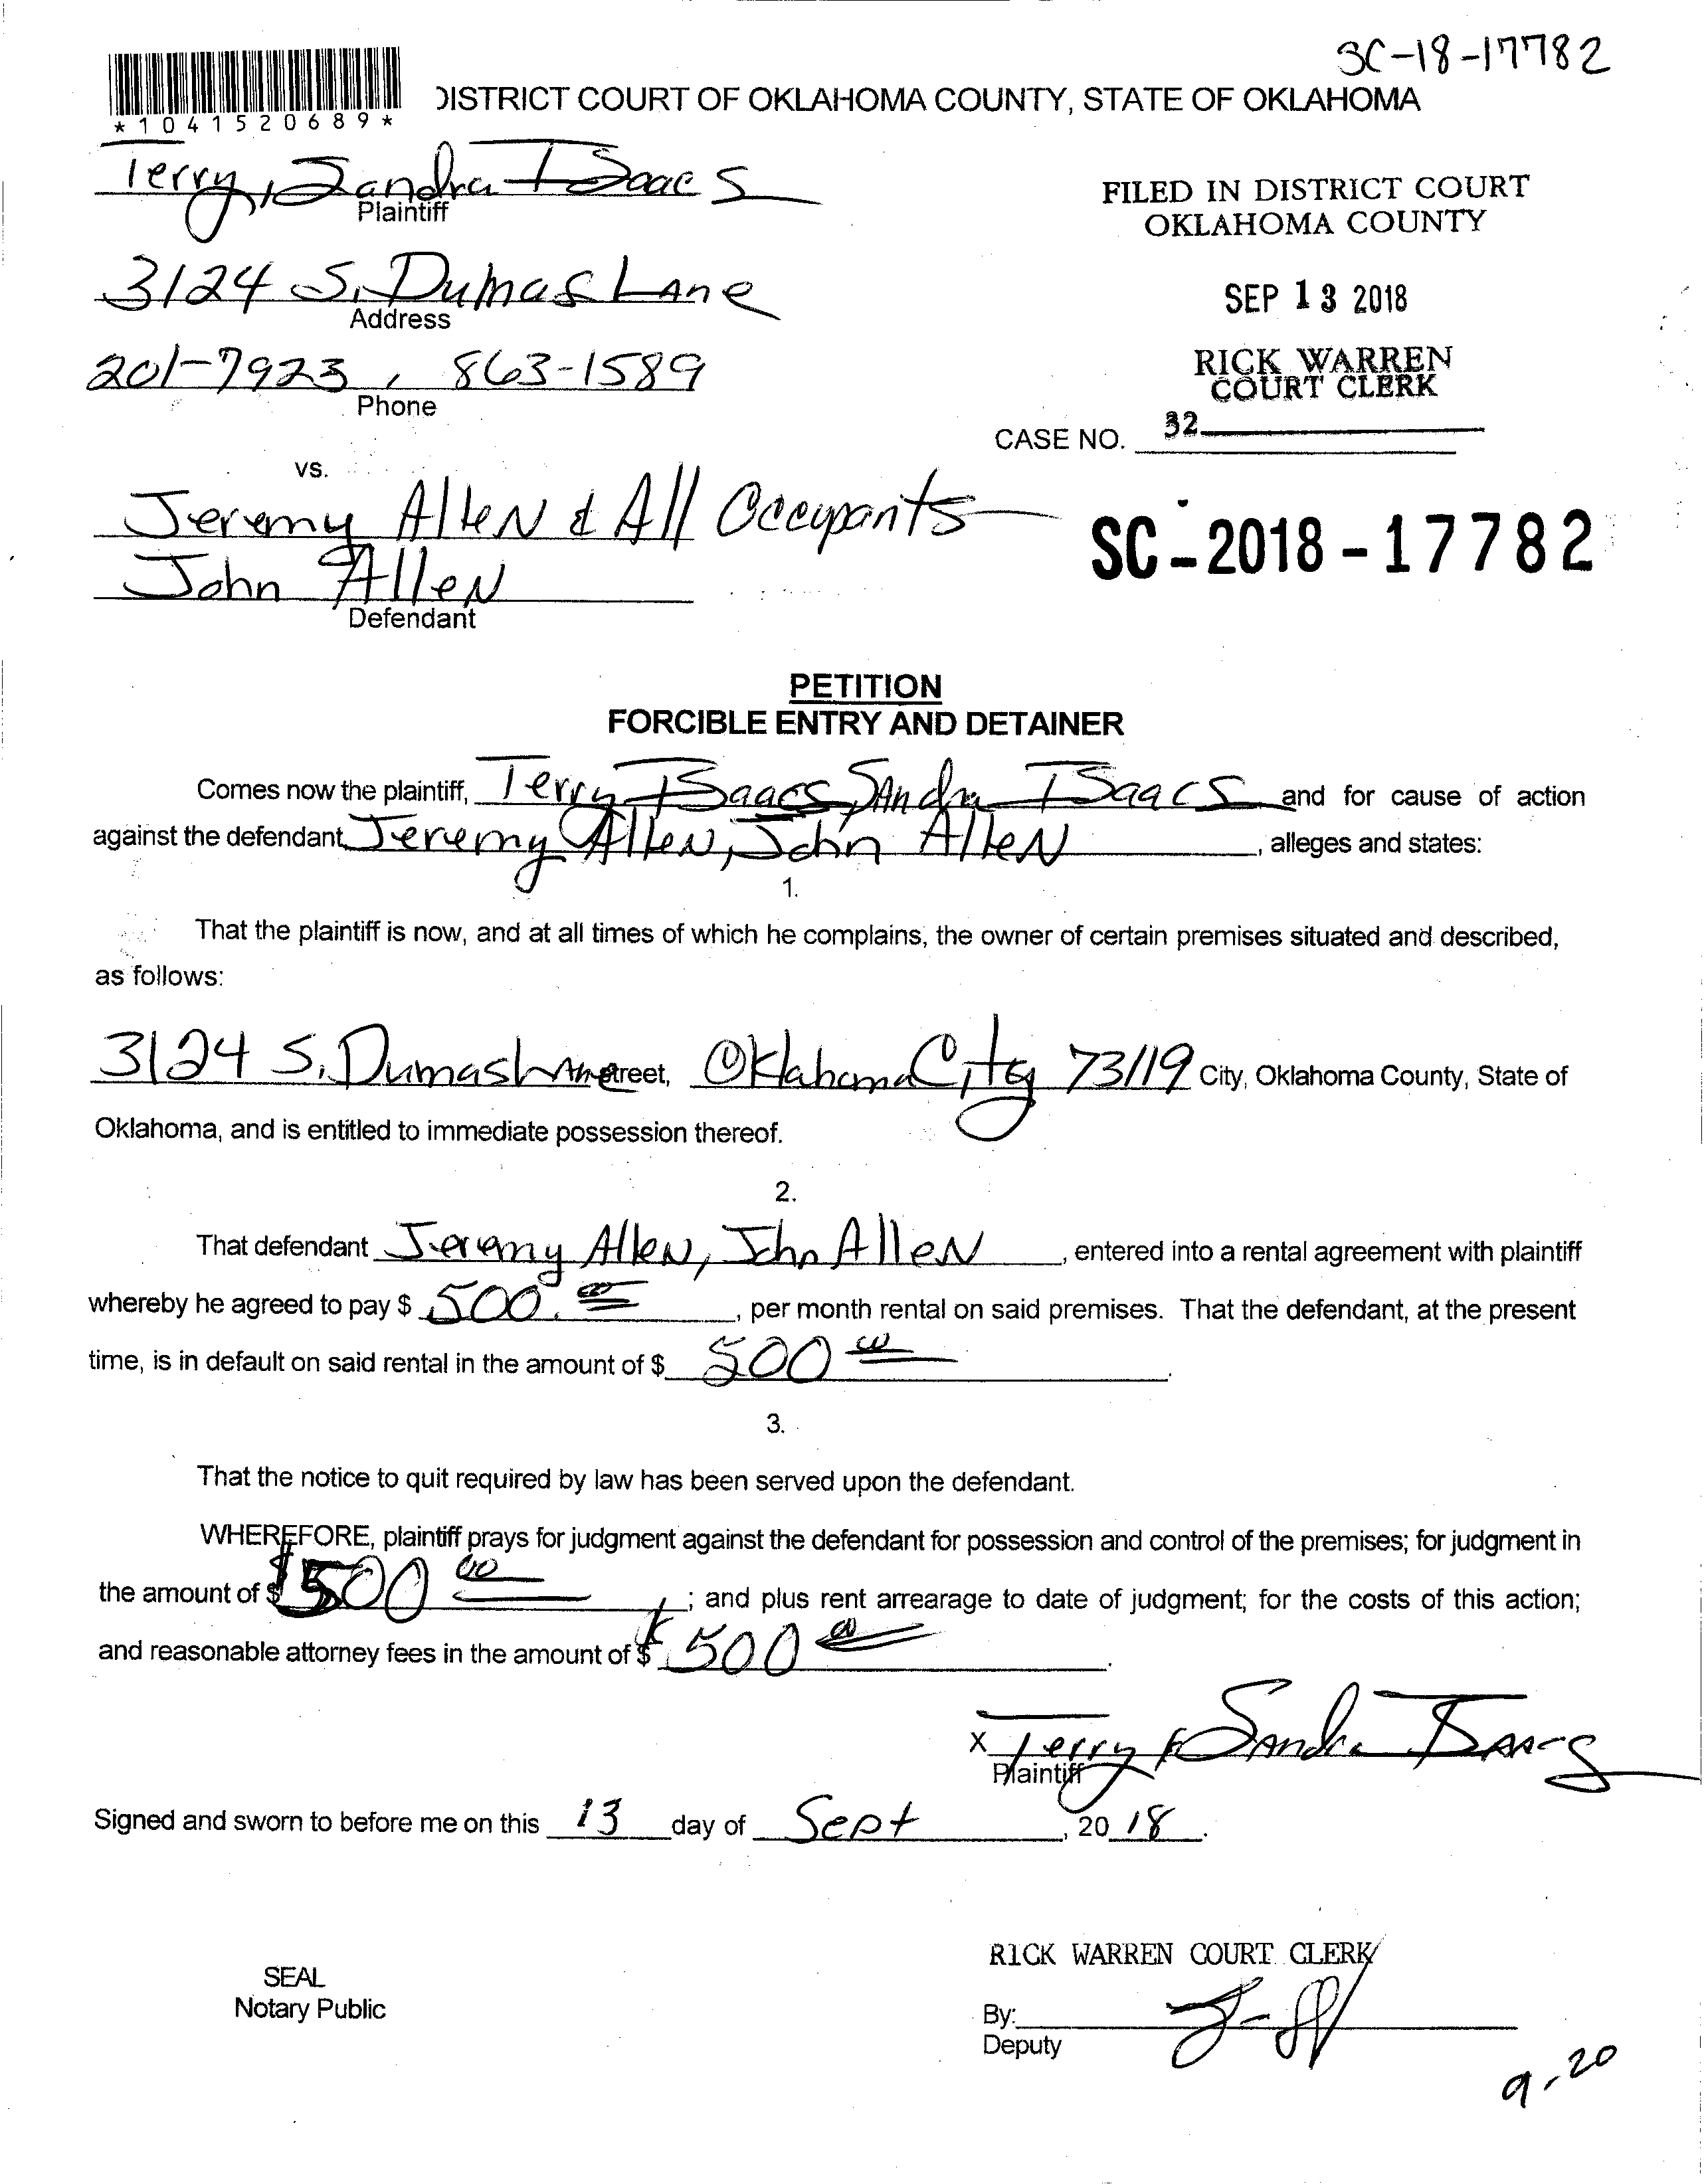 SC-18-17782
*1041520689*
DISTRICT COURT OF OKLAHOMA COUNTY, STATE OF OKLAHOMA
Terry, Sandra Isaacs
Plaintiff
FILED IN DISTRICT COURT
OKLAHOMA COUNTY
3124 S. Dumas Lane
Address
SEP 13 2018
201-7923, 863-1589
Phone
RICK WARREN
COURT CLERK
CASE NO. 32
vs.
Jeremy Allen & All Occupants
John Allen
Defendant
SC-2018-17782
PETITION
FORCIBLE ENTRY AND DETAINER
Comes now the plaintiff, Terry Isaacs, Sandra Isaacs and for cause of action
against the defendant, Jeremy Allen, John Allen, alleges and states:
1.
That the plaintiff is now, and at all times of which he complains, the owner of certain premises situated and described,
as follows:
3124 S. Dumas Lane Street, Oklahoma City 73119 City, Oklahoma County, State of
Oklahoma, and is entitled to immediate possession thereof.
2.
That defendant Jeremy Allen, John Allen, entered into a rental agreement with plaintiff
whereby he agreed to pay $ 500.00, per month rental on said premises. That the defendant, at the present
time, is in default on said rental in the amount of $ 500 00.
3.
That the notice to quit required by law has been served upon the defendant.
WHEREFORE, plaintiff prays for judgment against the defendant for possession and control of the premises; for judgment in
the amount of $ $500 00; and plus rent arrearage to date of judgment; for the costs of this action;
and reasonable attorney fees in the amount of $ 500 00.
X Terry & Sandra Isaacs
Plaintiff
Signed and sworn to before me on this 13 day of Sept, 20 18.
RICK WARREN COURT CLERK
SEAL
Notary Public
By:
Deputy
9-20